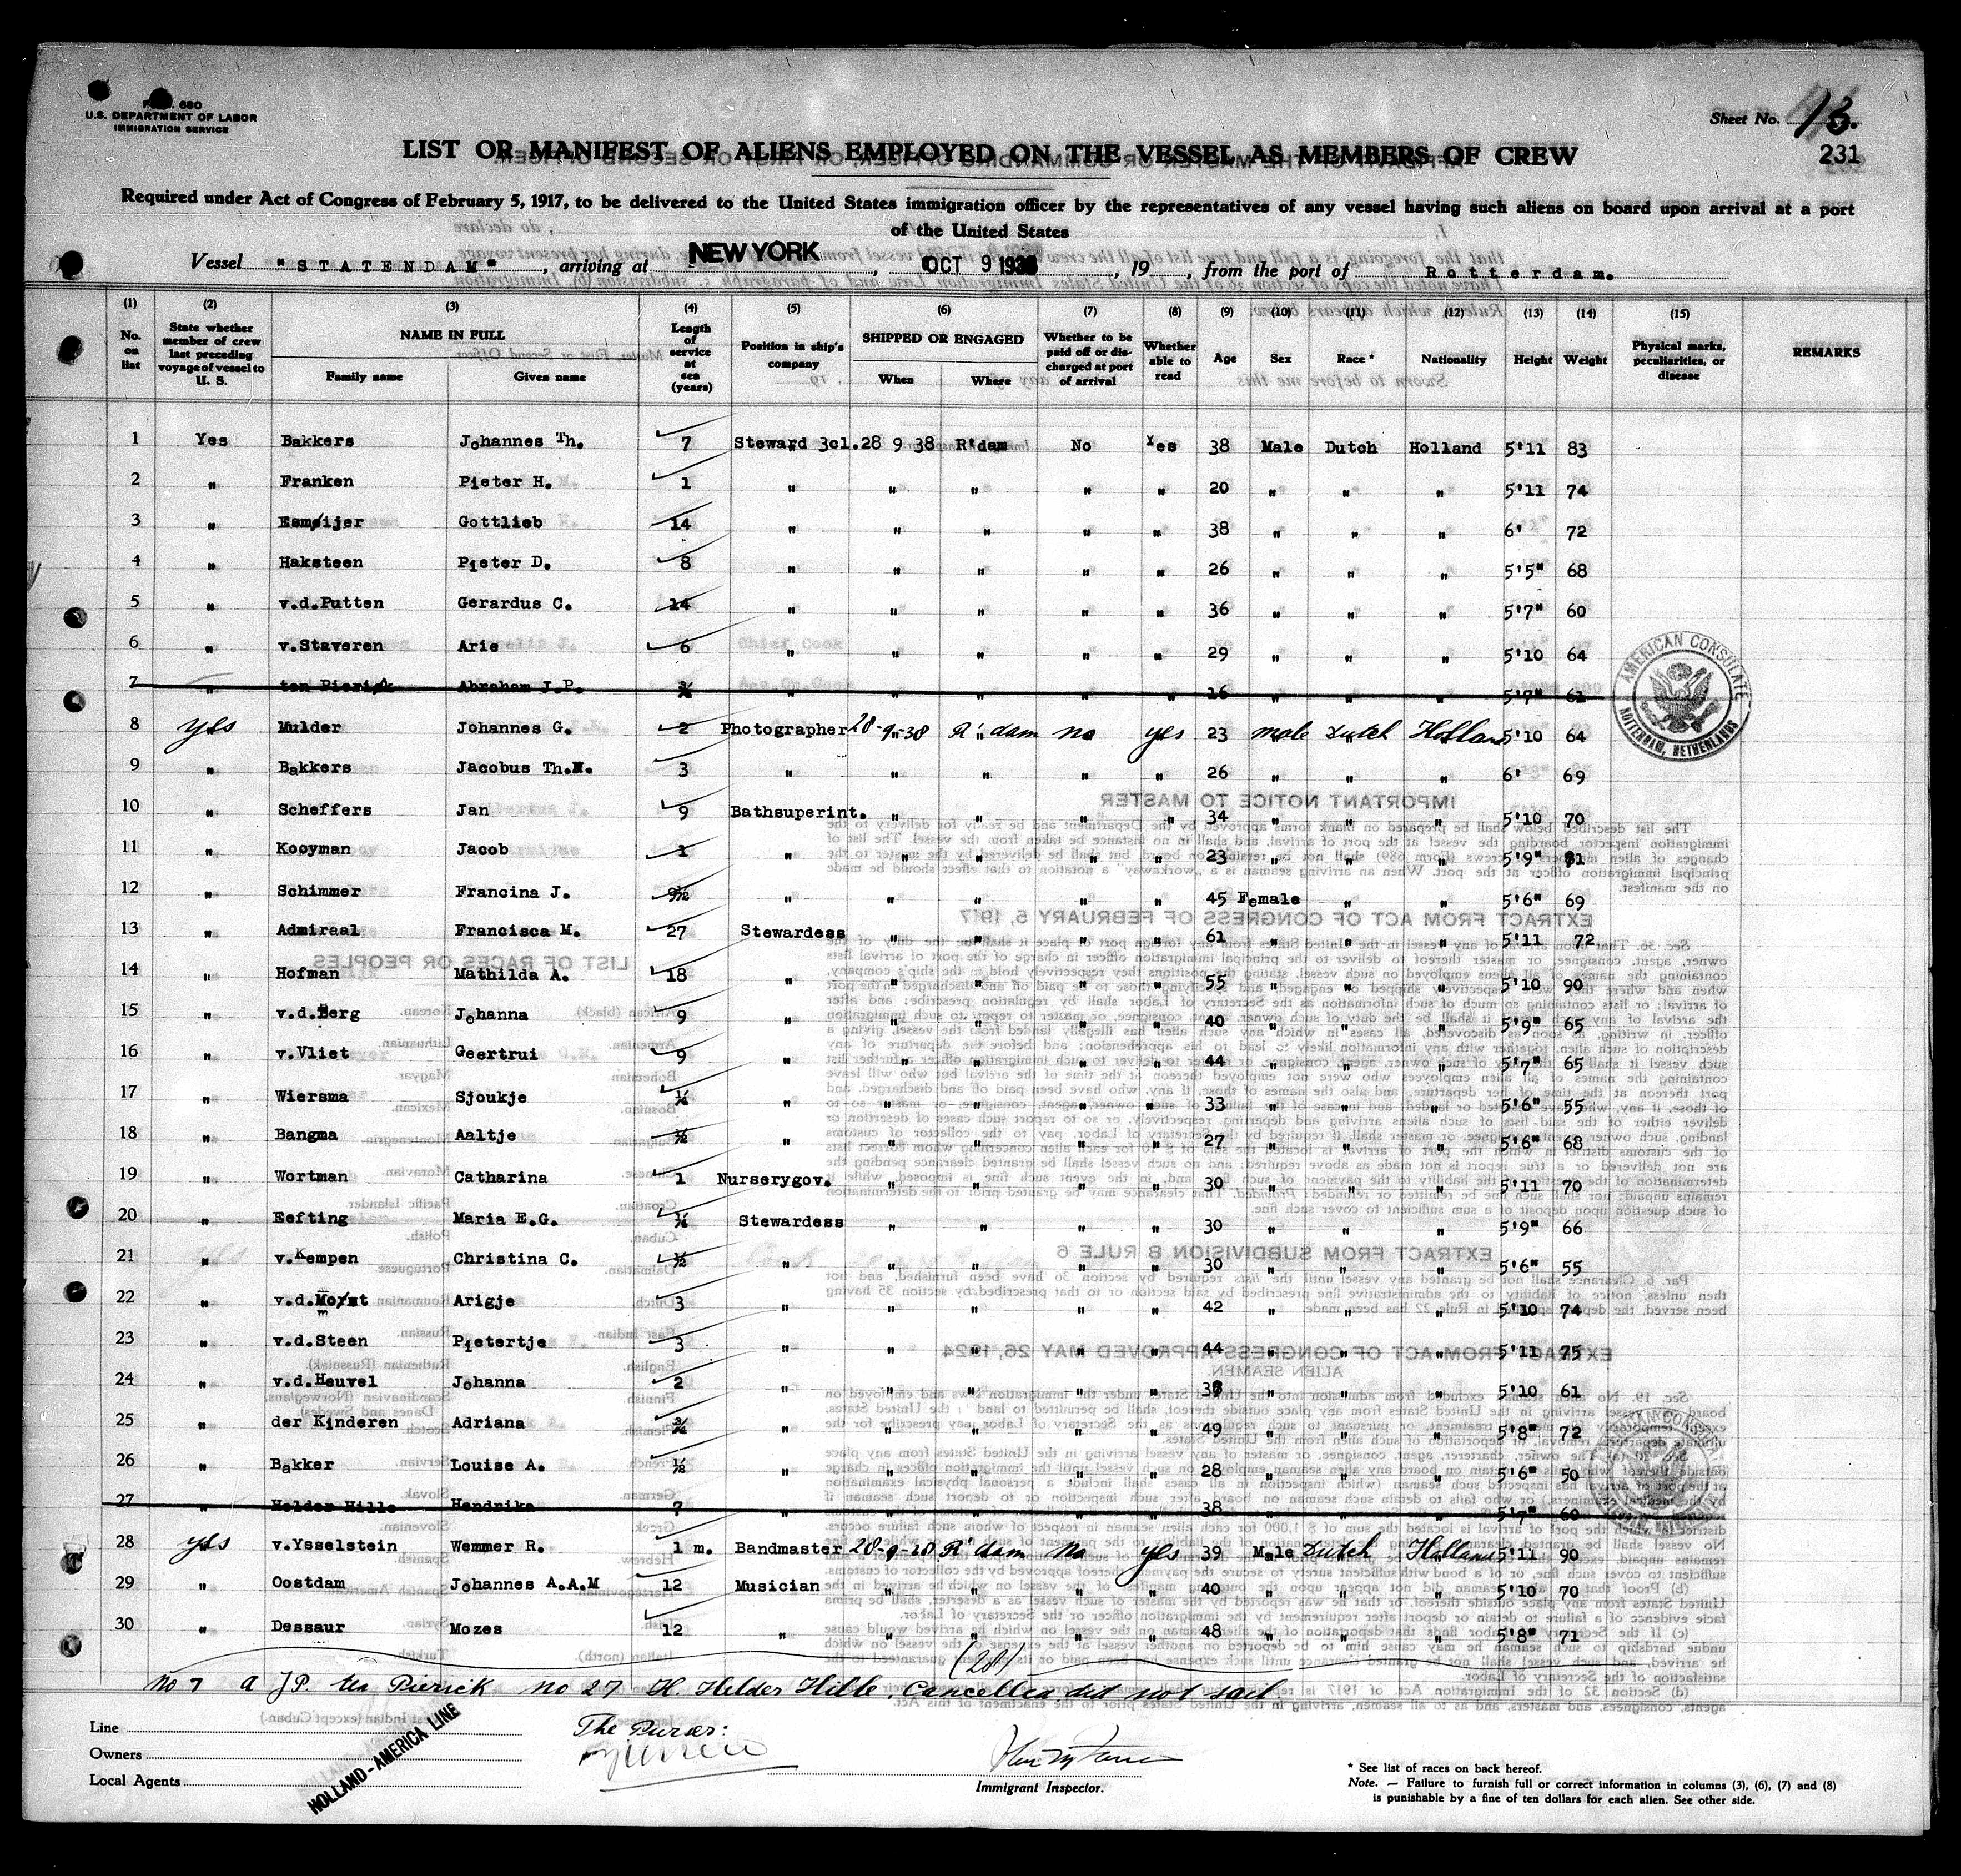 FORM 680
U.S. DEPARTMENT OF LABOR
IMMIGRATION SERVICE
Sheet No. 13.
231
LIST OR MANIFEST OF ALIENS EMPLOYED ON THE VESSEL AS MEMBERS OF CREW
Required under Act of Congress of February 5, 1917, to be delivered to the United States immigration officer by the representatives of any vessel having such aliens on board upon arrival at a port
of the United States
Vessel "STATENDAM", arriving at NEW YORK, OCT 9 1938, 19, from the port of Rotterdam.
(1) (2) (3) (4) (5) (6) (7) (8) (9) (10) (11) (12) (13) (14) (15)
No. on list State whether member of crew last preceding voyage of vessel to U. S. NAME IN FULL Family name Given name Length of service at sea (years) Position in ship's company SHIPPED OR ENGAGED When Where Whether to be paid off or discharged at port of arrival Whether able to read Age Sex Race * Nationality Height Weight Physical marks, peculiarities, or disease REMARKS
1 Yes Bakkers Johannes Th. 7 Steward 3cl. 28 9 38 R'dam No Yes 38 Male Dutch Holland 5'11 83
2 " Franken Pieter H. 1 " " " " " 20 " " " 5'11 74
3 " Esmeijer Gottlieb 14 " " " " " 38 " " " 6' 72
4 " Haksteen Pieter D. 8 " " " " " 26 " " " 5'5" 68
5 " v.d.Putten Gerardus C. 14 " " " " " 36 " " " 5'7" 60
6 " v.Staveren Arie 6 " " " " " 29 " " " 5'10 64
7 " ten Pierik Abraham J.P. " " " " " 16 " " " 5'7" 61
8 yes Mulder Johannes G. 2 Photographer 28-9-38 R'dam no yes 23 male Dutch Holland 5'10 64
9 " Bakkers Jacobus Th.N. 3 " " " " " 26 " " " 6' 69
10 " Scheffers Jan 9 Bathsuperint. " " " " 34 " " " 5'10 70
11 " Kooyman Jacob 1 " " " " " 23 " " " 5'9" 81
12 " Schimmer Francina J. 9½ " " " " " 45 Female " " 5'6" 69
13 " Admiraal Francisca M. 27 Stewardess " " " " 61 " " " 5'11 72
14 " Hofman Mathilda A. 18 " " " " " 55 " " " 5'10 90
15 " v.d.Berg Johanna 9 " " " " " 40 " " " 5'9" 65
16 " v.Vliet Geertrui 9 " " " " " 44 " " " 5'7" 65
17 " Wiersma Sjoukje ¼ " " " " " 33 " " " 5'6" 55
18 " Bangma Aaltje ½ " " " " " 27 " " " 5'6" 68
19 " Wortman Catharina 1 Nurserygov. " " " " 30 " " " 5'11 70
20 " Eefting Maria E.G. ¼ Stewardess " " " " 30 " " " 5'9" 66
21 " v.Kempen Christina C. ½ " " " " " 30 " " " 5'6" 55
22 " v.d. Arigje 3 " " " " " 42 " " " 5'10 74
23 " v.d.Steen Pietertje 3 " " " " " 44 " " " 5'11 75
24 " v.d.Heuvel Johanna 2 " " " " " " " " 5'10 61
25 " der Kinderen Adriana ¾ " " " " " 49 " " " 5'8" 72
26 " Bakker Louise A. ½ " " " " " 28 " " " 5'6" 50
27 " Helder Hille Hendrika 7 " " " " " 38 " " " 5'7" 60
28 yes v.Ysselstein Wemmer R. 1 m. Bandmaster 28-9-38 R'dam no yes 39 Male Dutch Holland 5'11 90
29 " Oostdam Johannes A.A.M 12 Musician " " " " 40 " " " 5'10 70
30 " Dessaur Mozes 12 " " " " " 48 " " " 5'8" 71
(28)
no 7 A JP. ten Pierick no 27 H. Helder Hille. Cancelled did not sail
AMERICAN CONSULATE
ROTTERDAM, NETHERLANDS
Line
Owners
Local Agents
HOLLAND-AMERICA LINE
The Purser:
Immigrant Inspector.
* See list of races on back hereof.
Note. — Failure to furnish full or correct information in columns (3), (6), (7) and (8)
is punishable by a fine of ten dollars for each alien. See other side.